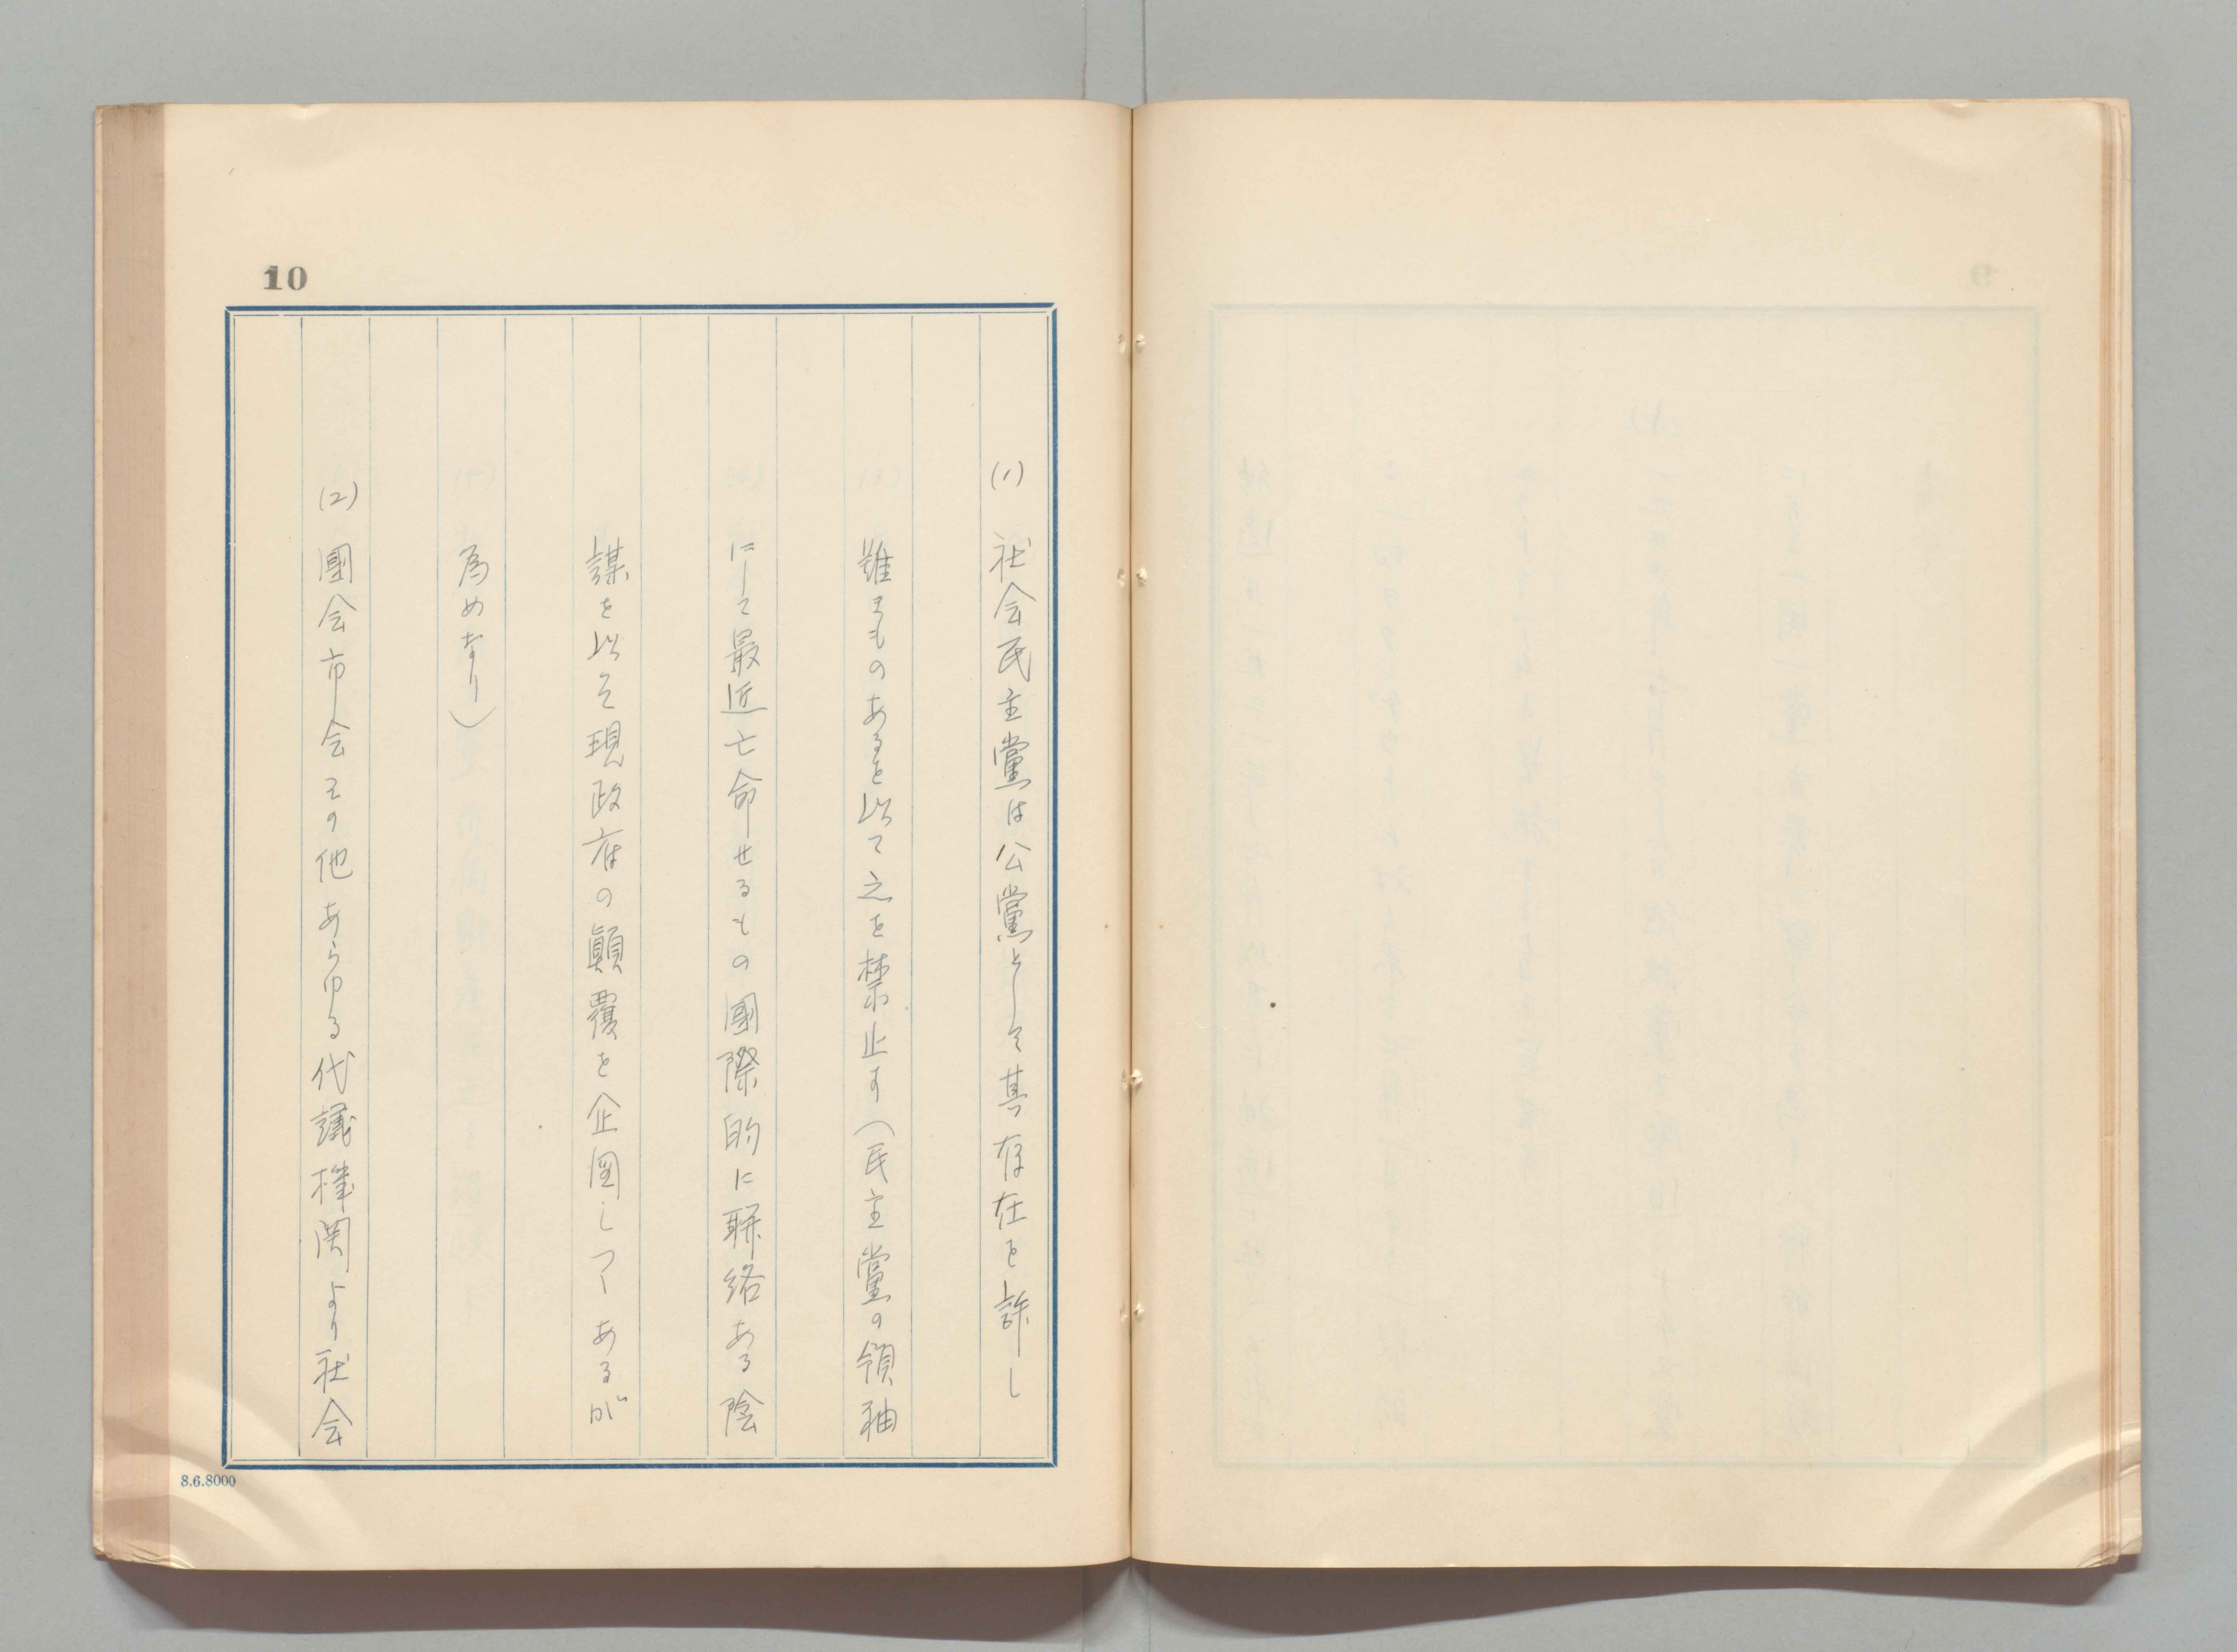 10
(1) 社会民主黨は公黨として其存在を許し
難きものあるを以て之を禁止す(民主黨の領袖
にして最近亡命せるもの團際的に聯絡ある陰
謀を以て現政府の顛覆を企図しつゝあるが
為めなり)
(2) 團会市会その他あらゆる代議機関より社会
8.6.8000